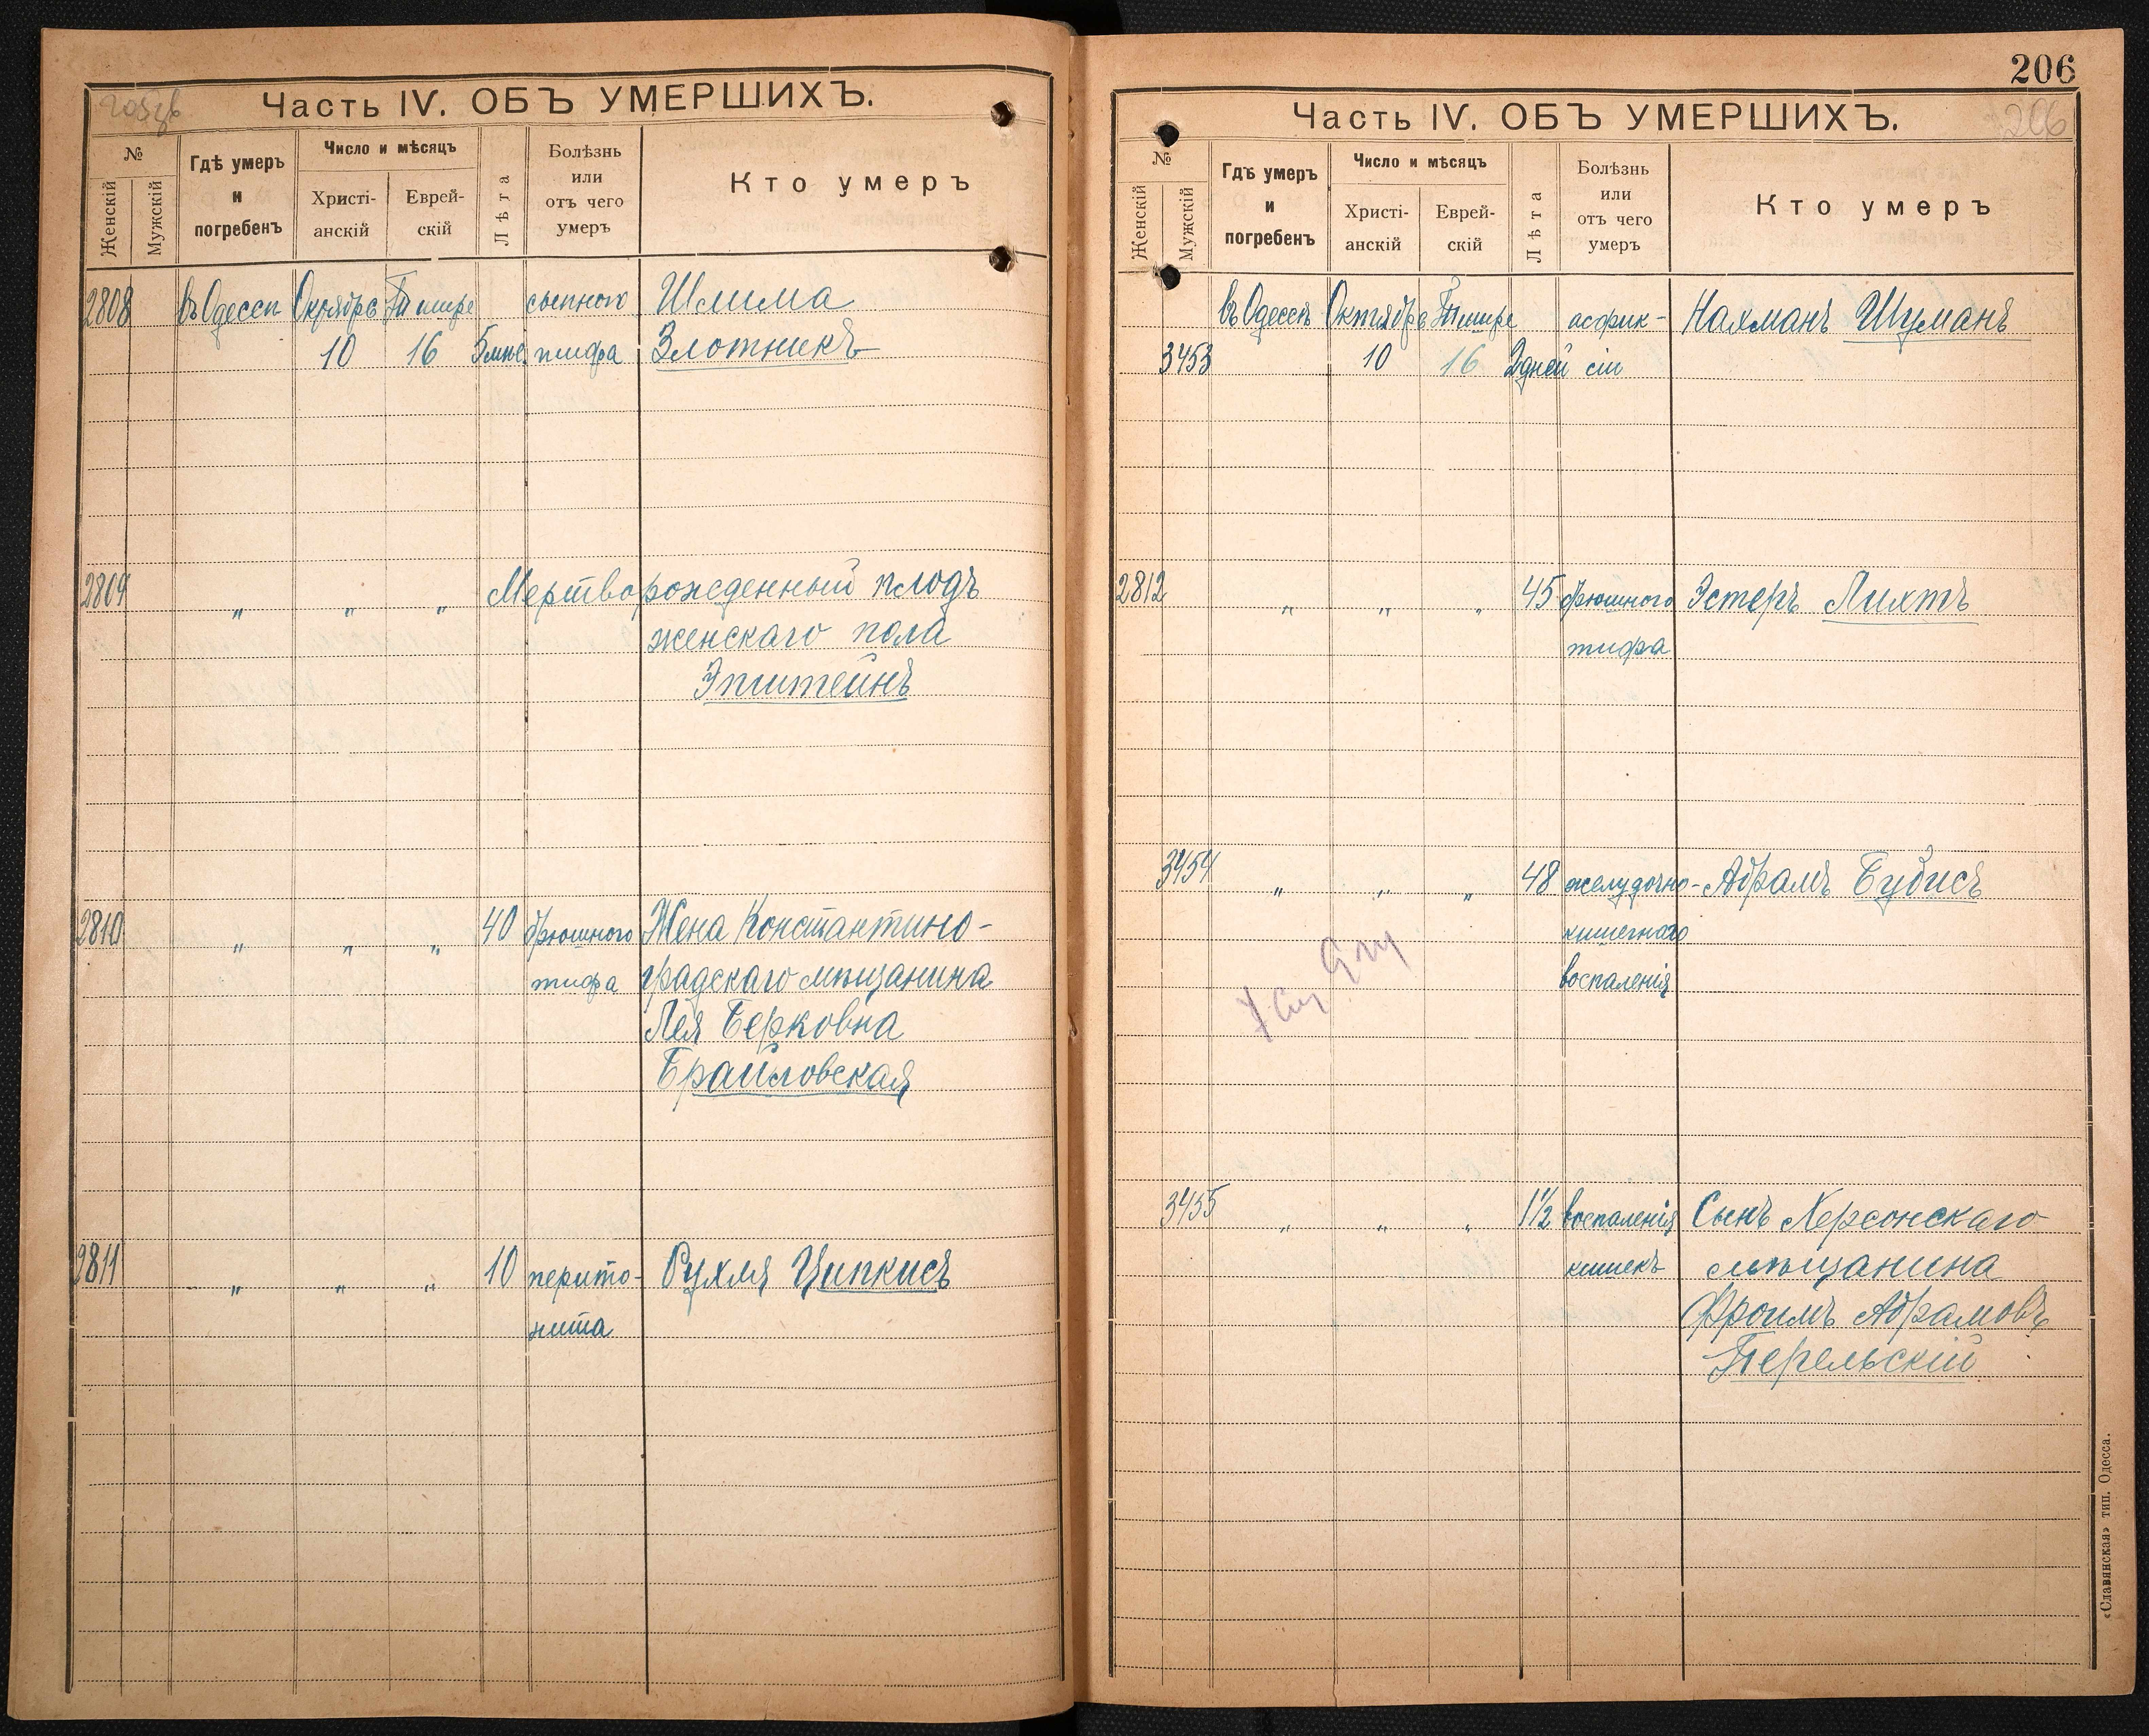 Часть IV. ОБЪ УМЕРШИХЪ.
№
Женскій
Мужскій
Гдѣ умеръ
и
погребенъ
Число и мѣсяцъ
Христі-
анскій
Еврей-
скій
Лѣта
Болѣзнь
или
отъ чего
умеръ
Кто умеръ
2808 въ Одессѣ Октября Тишре сыпного Шлима
10 16 5 мѣс. тифа Злотникъ
2809 „ „ „ Мертворожденный плодъ
женскаго пола
Эпштейнъ
2810 „ „ „ 40 брюшного Жена Константино-
тифа градскаго мѣщанина
Лея Берковна
Браиловская
2811 „ „ „ 10 перито- Рухля Ципкисъ
нита
206
206
Часть IV. ОБЪ УМЕРШИХЪ.
№
Женскій
Мужскій
Гдѣ умеръ
и
погребенъ
Число и мѣсяцъ
Христі-
анскій
Еврей-
скій
Лѣта
Болѣзнь
или
отъ чего
умеръ
Кто умеръ
въ Одессѣ Октября Тишре асфик- Нахманъ Шуманъ
3453 10 16 2 дней сіи
2812 „ „ „ 45 брюшного Эстеръ Лихтъ
тифа
3454 „ „ „ 48 желудочно- Абрамъ Будисъ
кишечнаго
воспаленія
3455 „ „ „ 1½ воспаленія Сынъ Херсонскаго
кишекъ мѣщанина
Фроимъ Абрамовъ
Перельскій
«Славянская» тип. Одесса.